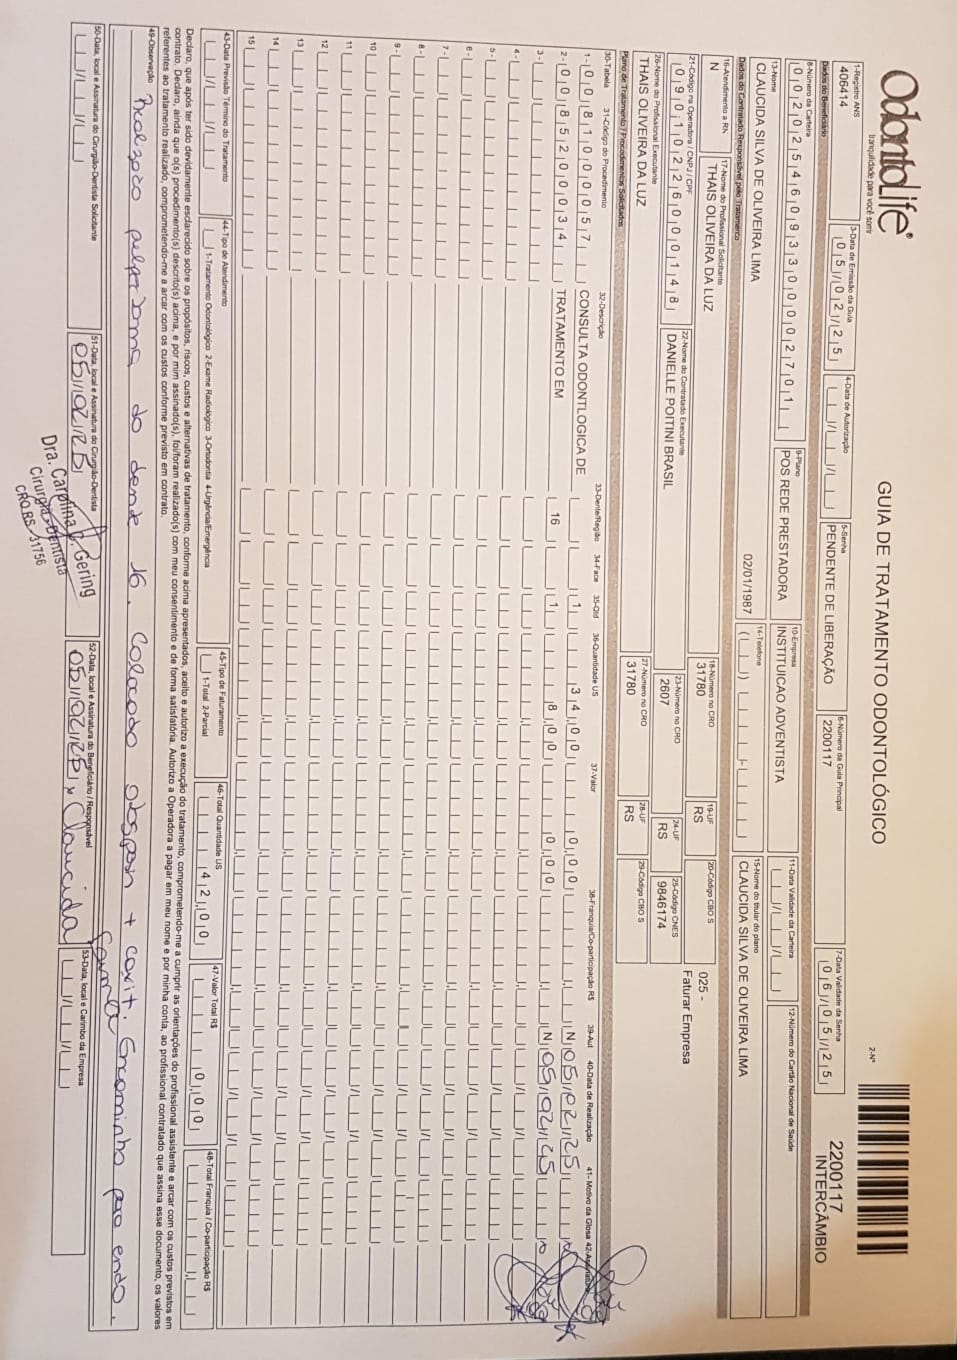 OdontoLife®
tranquilidade para você sorrir
GUIA DE TRATAMENTO ODONTOLÓGICO
2-Nº
2200117
INTERCÂMBIO
1-Registro ANS
406414
3-Data de Emissão da Guia
05/02/25
4-Data de Autorização
5-Senha
PENDENTE DE LIBERAÇÃO
6-Número da Guia Principal
2200117
7-Data Validade da Senha
06/05/25
Dados do Beneficiário
8-Número da Carteira
00202546093300002701
9-Plano
POS REDE PRESTADORA
10-Empresa
INSTITUICAO ADVENTISTA
11-Data Validade da Carteira
12-Número do Cartão Nacional de Saúde
13-Nome
CLAUCIDA SILVA DE OLIVEIRA LIMA
02/01/1987
14-Telefone
15-Nome do titular do plano
CLAUCIDA SILVA DE OLIVEIRA LIMA
Dados do Contratado Responsável pelo Tratamento
16-Atendimento a RN
N
17-Nome do Profissional Solicitante
THAIS OLIVEIRA DA LUZ
18-Número no CRO
31780
19-UF
RS
20-Código CBO S
025 -
Faturar Empresa
21-Código na Operadora / CNPJ / CPF
09010226000148
22-Nome do Contratado Executante
DANIELLE POITINI BRASIL
23-Número no CRO
2607
24-UF
RS
25-Código CNES
9846174
26-Nome do Profissional Executante
THAIS OLIVEIRA DA LUZ
27-Número no CRO
31780
28-UF
RS
29-Código CBO S
Plano de Tratamento / Procedimentos Solicitados
30-Tabela 31-Código do Procedimento 32-Descrição 33-Dente/Região 34-Face 35-Qtd 36-Quantidade US 37-Valor 38-Franquia/Co-participação R$ 39-Aut 40-Data de Realização 41- Motivo da Glosa 42-Assinatura
1- 00 81000057 CONSULTA ODONTLOGICA DE 1 34,00 0,00 N 05/02/25
2- 00 85200034 TRATAMENTO EM 16 1 8,00 0,00 N 05/02/25
3-
4-
5-
6-
7-
8-
9-
10
11
12
13
14
15
43-Data Previsão Término do Tratamento
44-Tipo de Atendimento
1-Tratamento Odontológico 2-Exame Radiológico 3-Ortodontia 4-Urgência/Emergência
45-Tipo de Faturamento
1-Total 2-Parcial
46-Total Quantidade US
42,00
47-Valor Total R$
0,00
48-Total Franquia / Co-participação R$
Declaro, que após ter sido devidamente esclarecido sobre os propósitos, riscos, custos e alternativas de tratamento, conforme acima apresentados, aceito e autorizo a execução do tratamento, comprometendo-me a cumprir as orientações do profissional assistente e arcar com os custos previstos em
contrato. Declaro, ainda que o(s) procedimento(s) descrito(s) acima, e por mim assinado(s), foi/foram realizado(s) com meu consentimento e de forma satisfatória. Autorizo a Operadora a pagar em meu nome e por minha conta, ao profissional contratado que assina esse documento, os valores
referentes ao tratamento realizado, comprometendo-me a arcar com os custos conforme previsto em contrato.
49-Observação
do dente 16. Colocado otospon + cavit. Encaminho para endo.
50-Data, local e Assinatura do Cirurgião-Dentista Solicitante
51-Data, local e Assinatura do Cirurgião-Dentista
05/02/25
Dra. Carolina C. Gering
Cirurgiã-Dentista
CRO RS 31756
52-Data, local e Assinatura do Beneficiário / Responsável
05/02/25 x Claucida
53-Data, local e Carimbo da Empresa